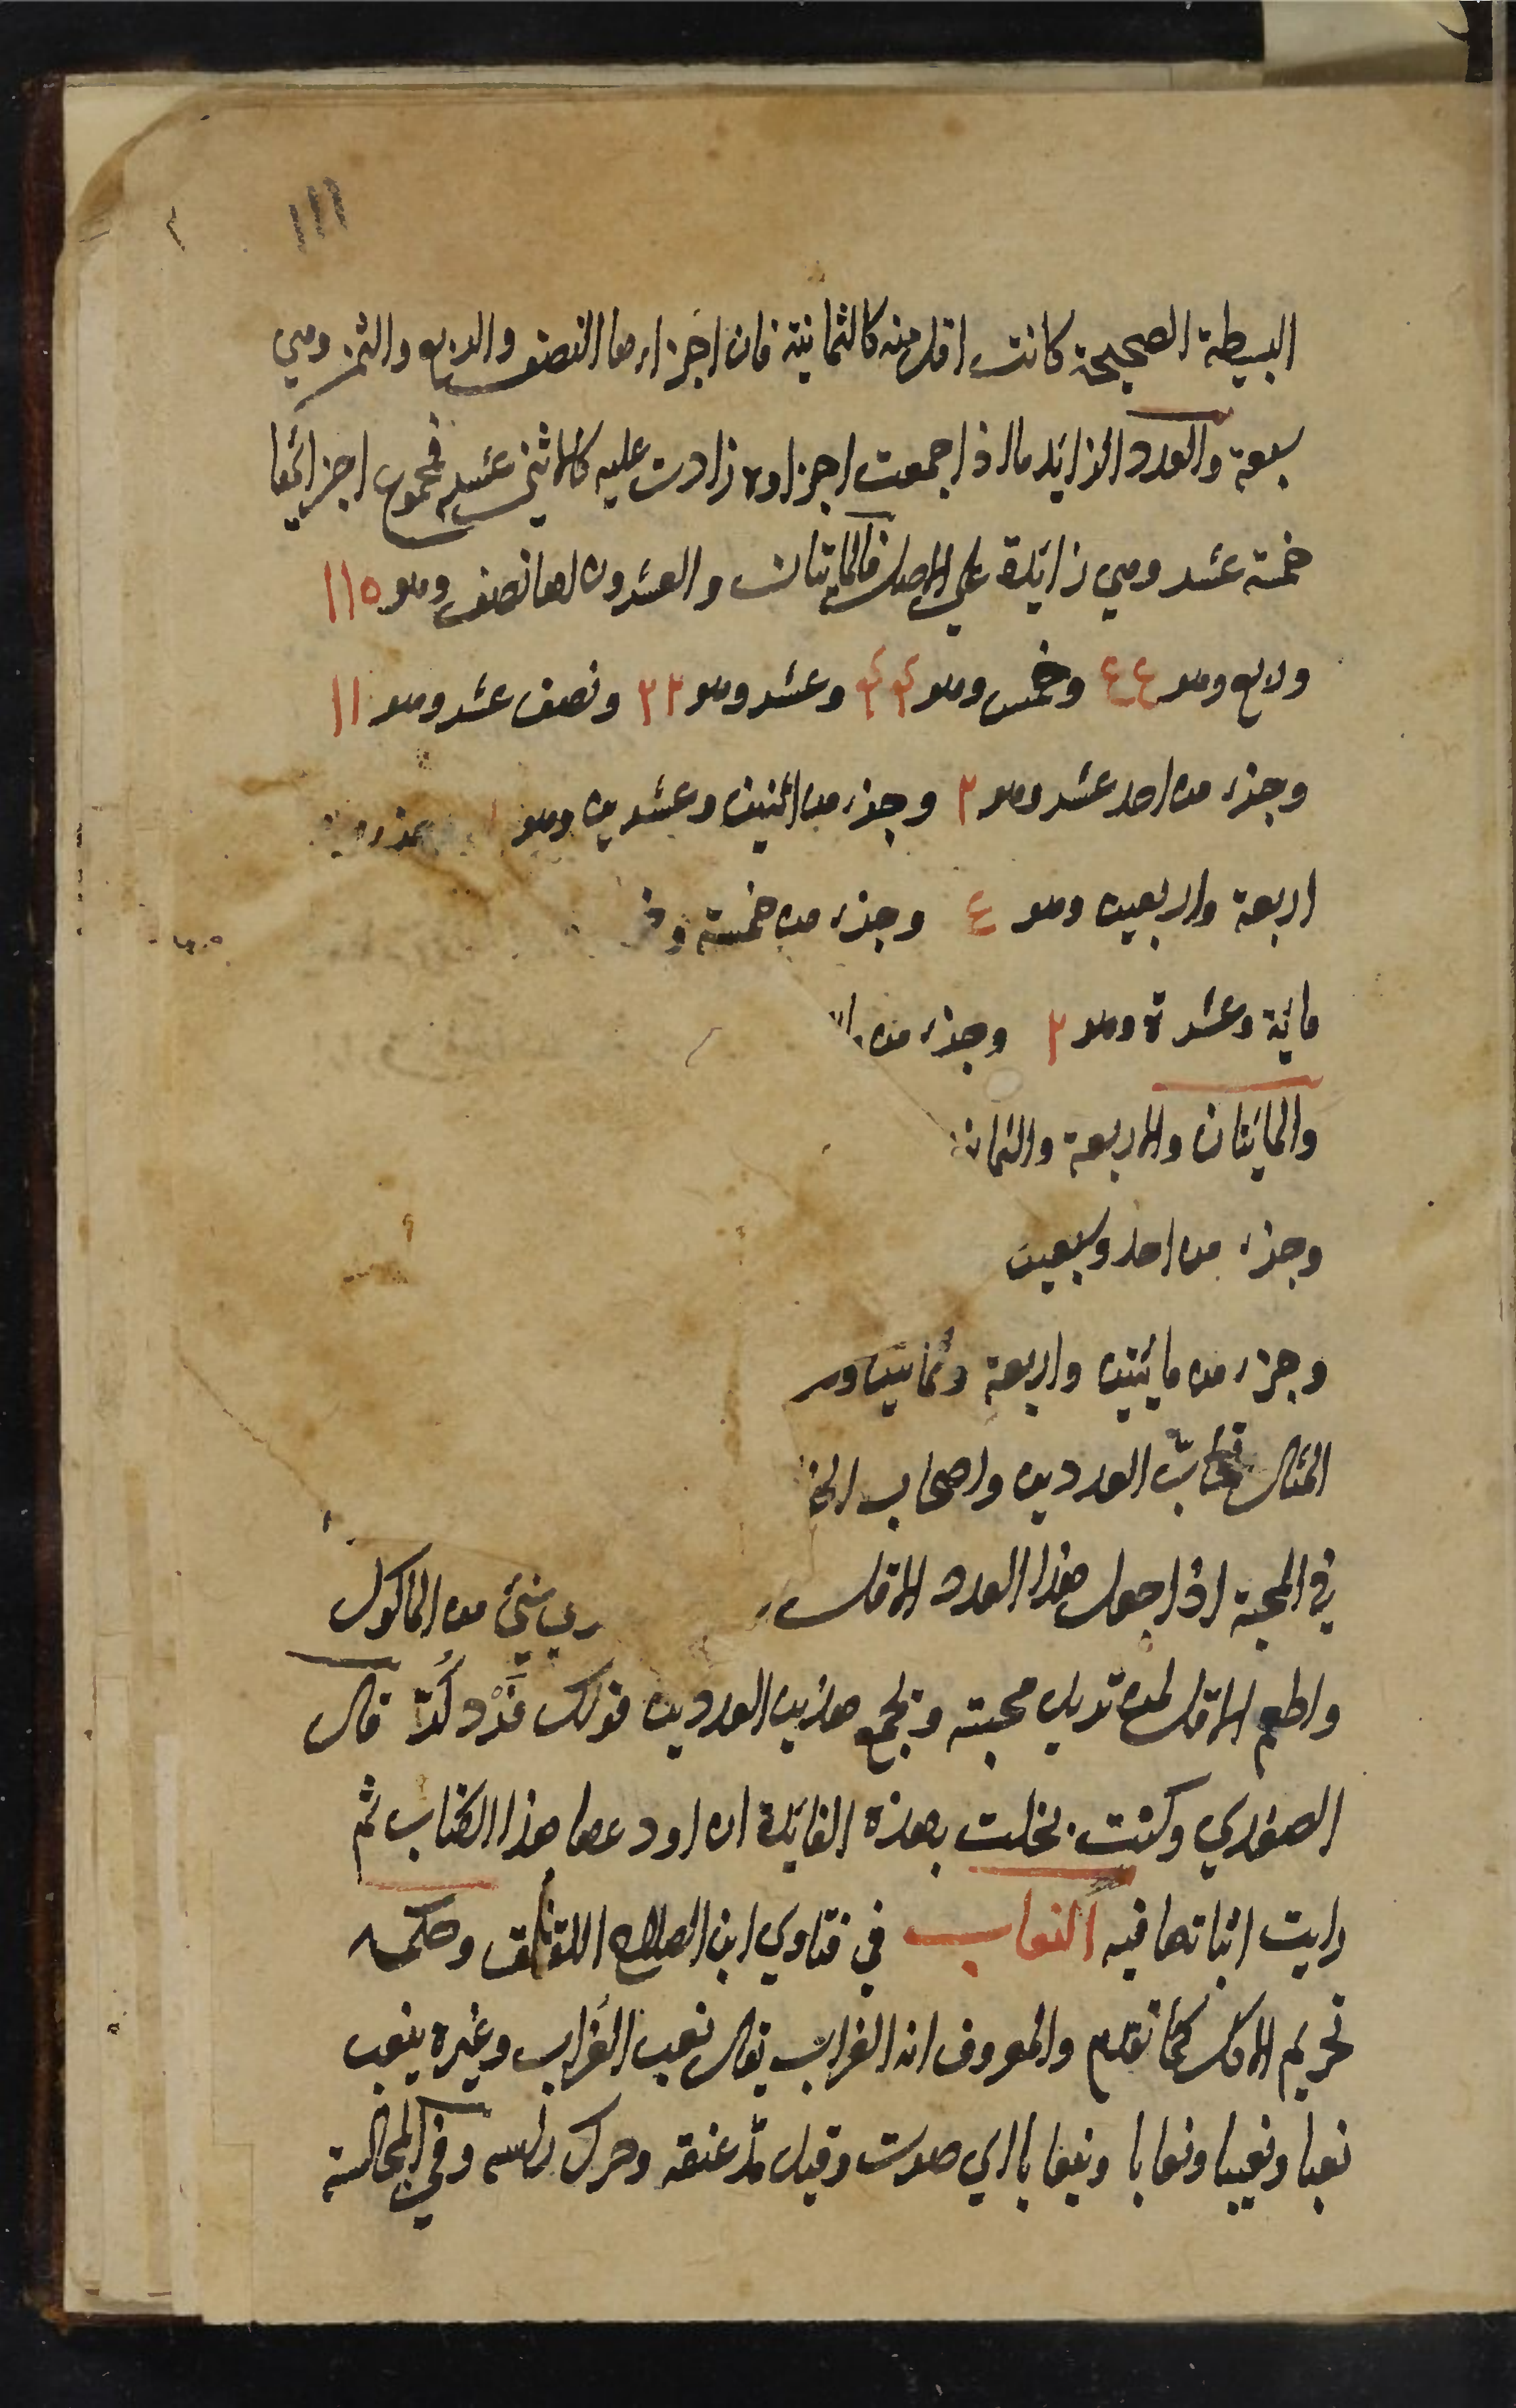 ١١١
البسيطة الصحيحة كانت اقل منه كالثمانية فان اجزاءها النصف والربع والثمن وهي
سبعة والعدد الزايد ما اذا جمعت اجزاوه زادت عليه كالاثني عشر فمجموع اجزائها
خمسة عشر وهي زايدة علي الاصل فالمايتان والعشرون لها نصف وهو ١١٥
وربع وهو ٤٤ وخمس وهو ٤٤ وعشر وهو ٢٢ ونصف عشر وهو ١١
وجزء من احد عشر وهو ٢ وجزء من اثنين وعشرين وهو
اربعة واربعين وهو ٤ وجزء من خمسة
ماية وعشرة وهو ٢ وجزء من
والمايتان والاربعة
وجزء من احد وسبعين
وجزء من مايتين واربعة وثمانين
المثال تحاب العددين واصحاب
في المحبة اذا جعل هذا العدد الاقل شئ من الماكول
واطعم الاقل لمن تريد محبته ويجمع هذين العددين قولك فَرْد كُد قال
الصفدي وكنت بخلت بهذه الفايدة ان اودعها هذا الكتاب ثم
رايت اثباتها فيه النعاب في فتاوي ابن الصلاح اللقلق وحكمه
تحريم الاكل كما تقدم والمعروف انه الغراب يقال نعب الغراب وغيره ينعب
نعبا ونعيبا ونعابا ونيعابا اي صوت وقيل مد عنقه وحرك راسه وفي المجالسة